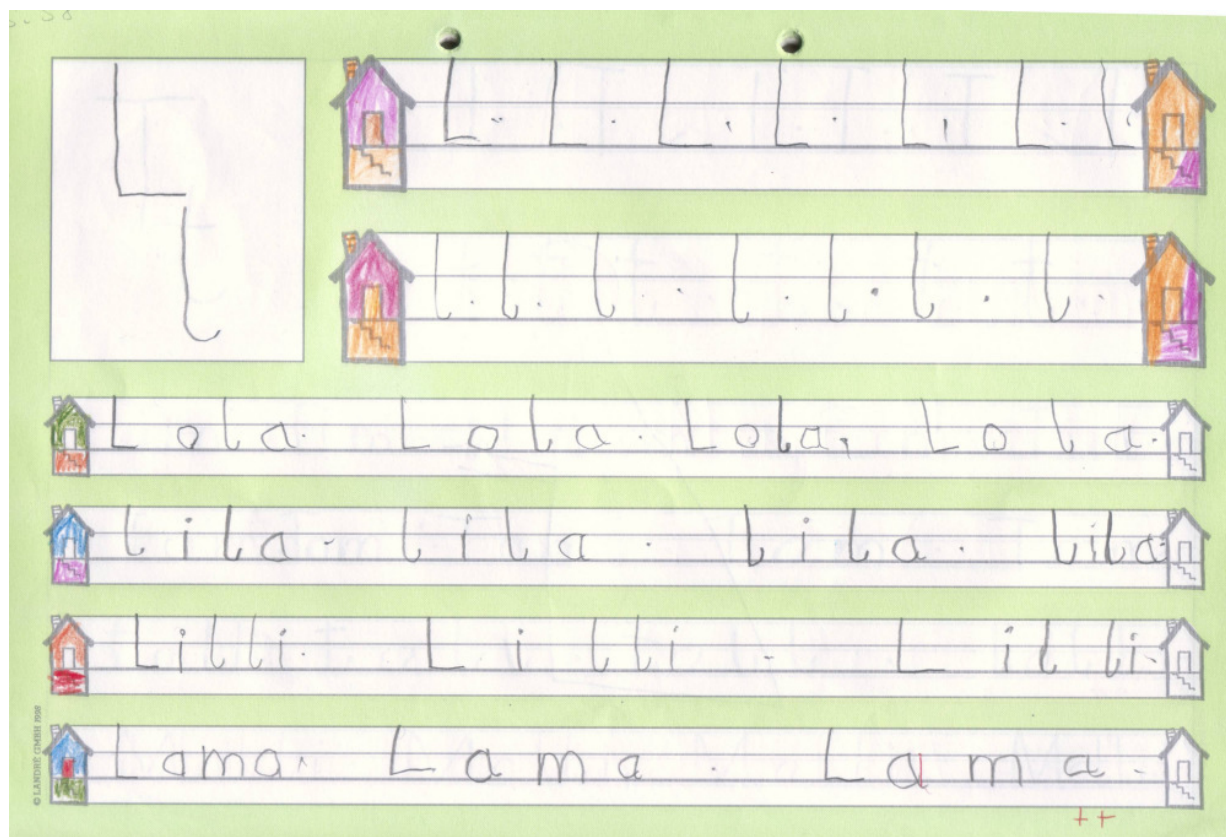 L l
L. L. L. L. L. L. L.
l. l. l. l. l. l. l.
Lola. Lola. Lola. Lola.
lila. lila. lila. lila.
Lilli. Lilli. Lilli.
Lama. Lama. Lama.
++
© LANDRÉ GMBH 1998